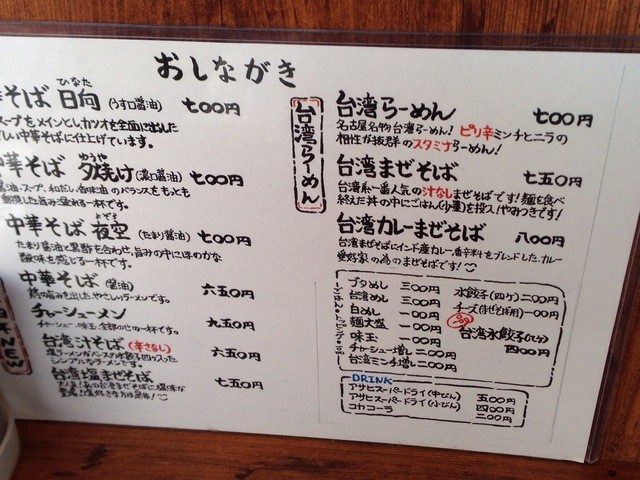 おしながき
そば 日向 (うす口醤油) 七〇〇円
ひなた
スープをメインとしカツオを全面に出した
しい中華そばに仕上げています。
華そば 夕焼け (濃口醤油) 七〇〇円
ゆうや
油スープ、和だし、香味油のバランスをもっとも
した旨み溢れる一杯です。
中華そば 夜空 (たまり醤油) 七〇〇円
よぞら
たまり醤油と黒酢を合わせ、旨みの中にほのかな
酸味を感じる一杯です。
中華そば (醤油) 六五〇円
鶏の旨みを出したやさしいラーメンです。
チャーシューメン 九五〇円
チャーシュー・味玉・全部のせの一杯です。
台湾汁そば (辛さなし) 六五〇円
塩ラーメンがベースの水餃子四ヶ入った
シンプルなラーメンです。
台湾塩まぜそば 七五〇円
NEW
台湾らーめん
台湾らーめん 七〇〇円
名古屋名物台湾らーめん! ピリ辛ミンチとニラの
相性が抜群のスタミナらーめん!
台湾まぜそば 七五〇円
台湾系一番人気の汁なしまぜそばです!麺を食べ
終えた丼の中にごはん(少量)を投入!やみつきです!
台湾カレーまぜそば 八〇〇円
台湾まぜそばにインド産カレー香辛料をブレンドした、カレー
愛好家の為のまぜそばです!
ブタめし 三〇〇円
台湾めし 三〇〇円
白めし 一〇〇円
麺大盛 一〇〇円
味玉 一〇〇円
チャーシュー増し 二〇〇円
台湾ミンチ増し 二〇〇円
水餃子(四ケ) 二〇〇円
チーズ(まぜそば用) 一〇〇円
台湾水餃子(八ケ)
四〇〇円
DRINK
アサヒスーパードライ(中びん) 五〇〇円
アサヒスーパードライ(小びん) 四〇〇円
コカコーラ 二〇〇円